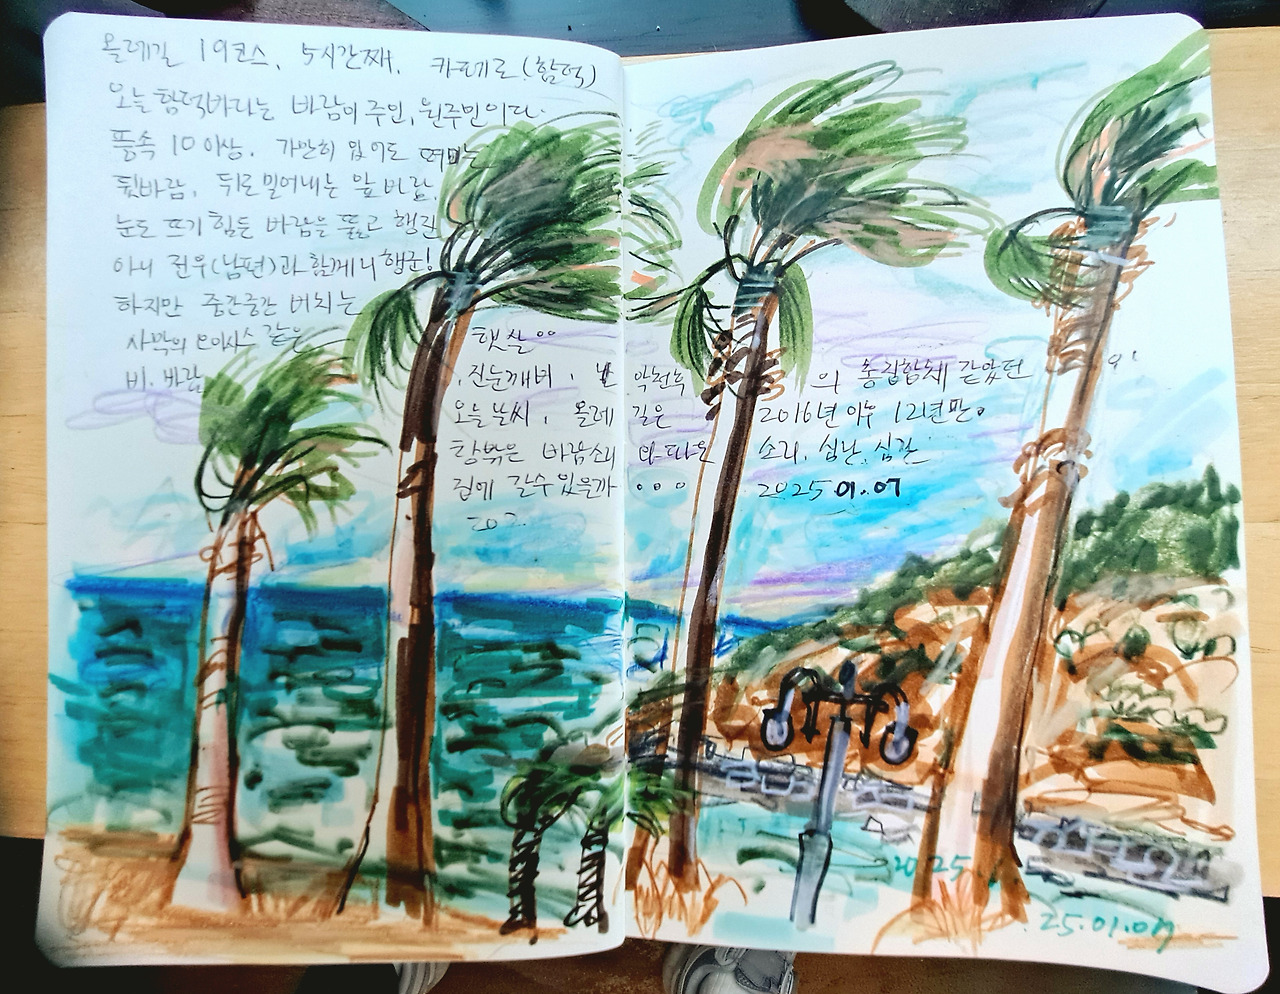 올레길 19코스, 5시간째. 카페로(함덕)
오늘 함덕바다는 바람이 주인, 원주민이다.
풍속 10이상. 가만히 있어도 떠미는
뒷바람, 뒤로 밀어내는 앞바람,
눈도 뜨기 힘든 바람을 뚫고 행진
아니 전우(남편)과 함께니 행군!
하지만 중간중간 비치는
사막의 오아시스 같은 햇살..
비. 바람, 진눈깨비, 눈 악천후의 종합합체 같았던
오늘 날씨, 올레길은 2016년 이후 121년만.
창밖은 바람소리 파도 소리. 심난. 심란
집에 갈수있을까 ... 2025 01.07
202
2025
25.01.07